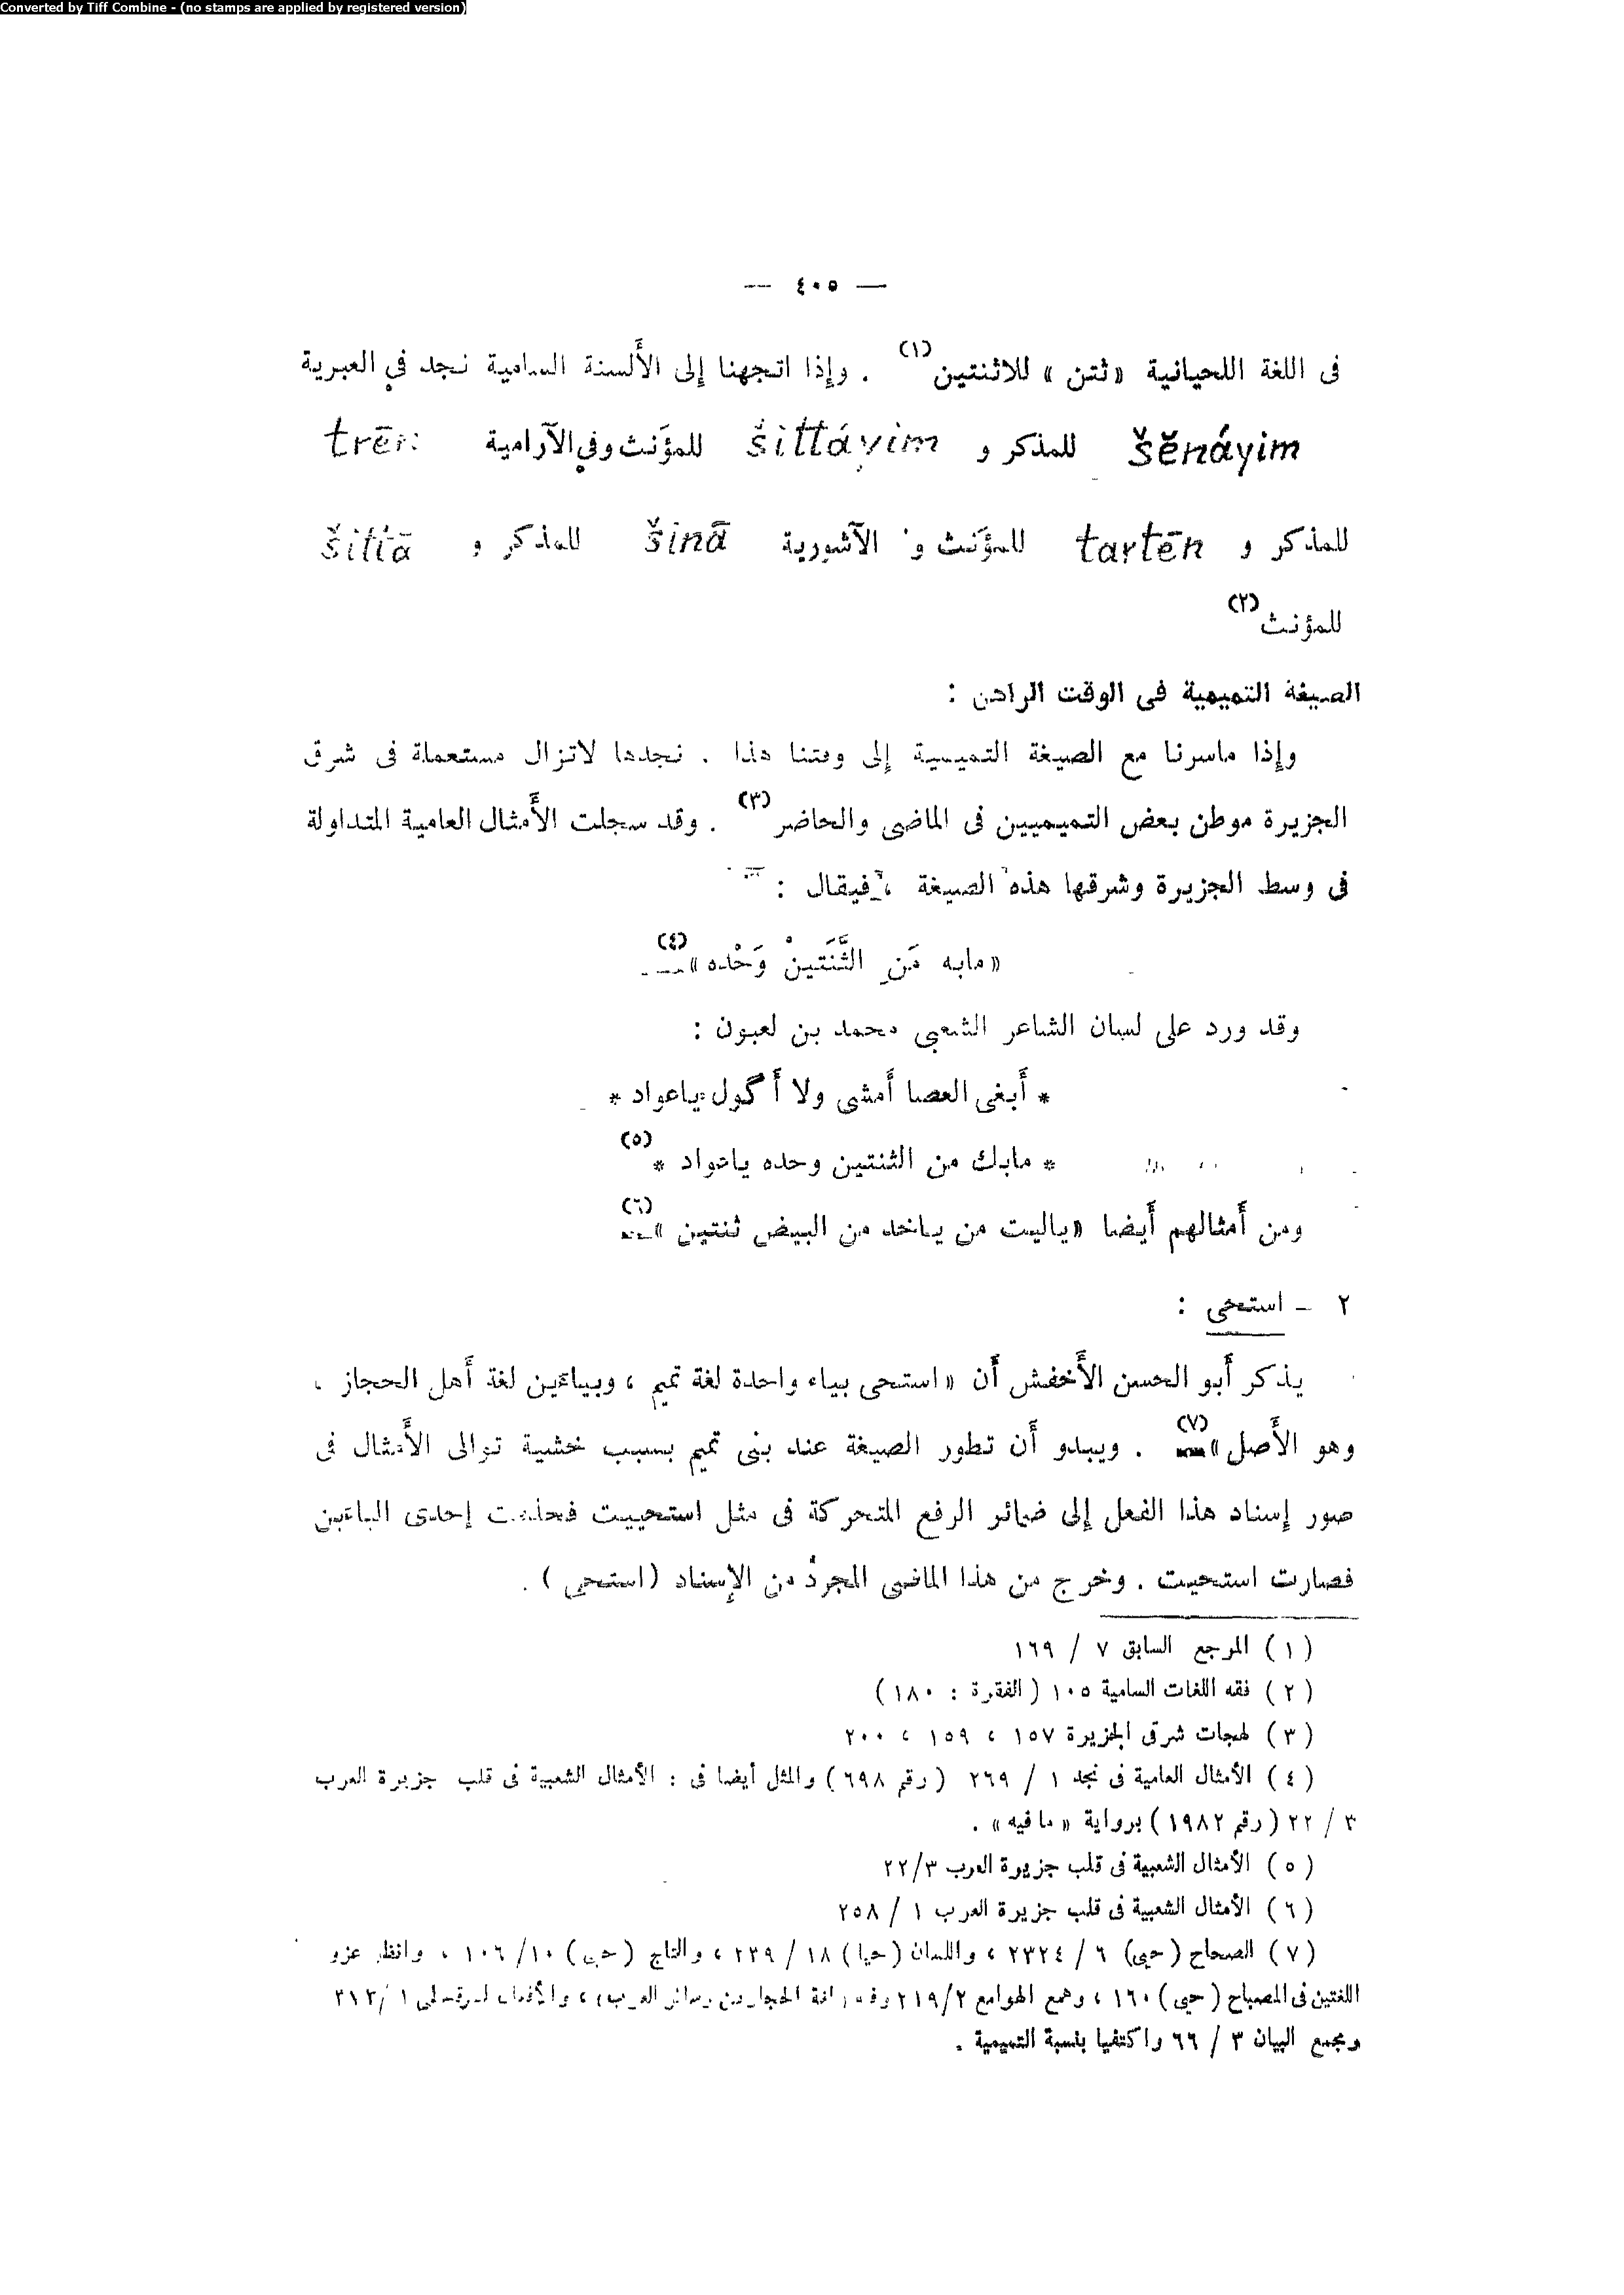 Converted by Tiff Combine - (no stamps are applied by registered version)
— ٤٠٥ —
فى اللغة اللحيانية «ثتن» للاثنتين(١) . وإذا اتجهنا إلى الألسنة السامية نجد في العبرية
šĕnáyim للمذكر و šittáyim للمؤنث وفي الآرامية trēn
للمذكر و tartēn للمؤنث و الآشورية šinā للمذكر و šittā
للمؤنث(٢)
الصيغة التميمية فى الوقت الراهن :
وإذا ماسرنا مع الصيغة التميمية إلى وقتنا هذا . نجدها لاتزال مستعملة فى شرق
الجزيرة موطن بعض التميميين فى الماضى والحاضر(٣) . وقد سجلت الأمثال العامية المتداولة
فى وسط الجزيرة وشرقها هذه الصيغة ، فيقال :
«مابه مَنِ الثَّنَتينْ وَحْده»(٤)
وقد ورد على لسان الشاعر الشعبى محمد بن لعبون :
* أَبغى العصا أَمشى ولا أَگول ياعواد *
* مابك من الثنتين وحده ياعواد *(٥)
ومن أَمثالهم أَيضا «ياليت من ياخد من البيض ثنتين»(٦)
٢ – استحى :
يذكر أَبو الحسن الأَخفش أَن «استحى بياء واحدة لغة تميم ، وبياءين لغة أَهل الحجاز ،
وهو الأَصل»(٧) . ويبدو أَن تطور الصيغة عند بنى تميم بسبب خشية توالى الأَمثال فى
صور إسناد هذا الفعل إلى ضمائر الرفع المتحركة فى مثل استحييت فحذفت إحدى الياءين
فصارت استحيت . وخرج من هذا الماضى المجرد من الإسناد (استحى) .
(١) المرجع السابق ٧ / ١٦٩
(٢) فقه اللغات السامية ١٠٥ (الفقرة : ١٨٠)
(٣) لهجات شرقى الجزيرة ١٥٧ ، ١٥٩ ، ٢٠٠
(٤) الأمثال العامية فى نجد ١ / ٢٦٩ (رقم ٦٩٨) والمثل أيضا فى : الأمثال الشعبية فى قلب جزيرة العرب
٣ / ٢٢ (رقم ١٩٨٢) برواية «مافيه» .
(٥) الأمثال الشعبية فى قلب جزيرة العرب ٢٢/٣
(٦) الأمثال الشعبية فى قلب جزيرة العرب ١ / ٢٥٨
(٧) الصحاح (حيى) ٦ / ٢٣٢٤ ، واللسان (حيا) ١٨ / ٢٣٩ ، والتاج (حيى) ١٠ / ١٠٦ ، وانظر عزو
اللغتين فى المصباح (حيى) ١٦٠ ، وهمع الهوامع ٢١٩/٢ العرب ، والأفعال للسرقسطى ١ / ٣١٣
ومجمع البيان ٣ / ٦٦ واكتفيا بنسبة التميمية .